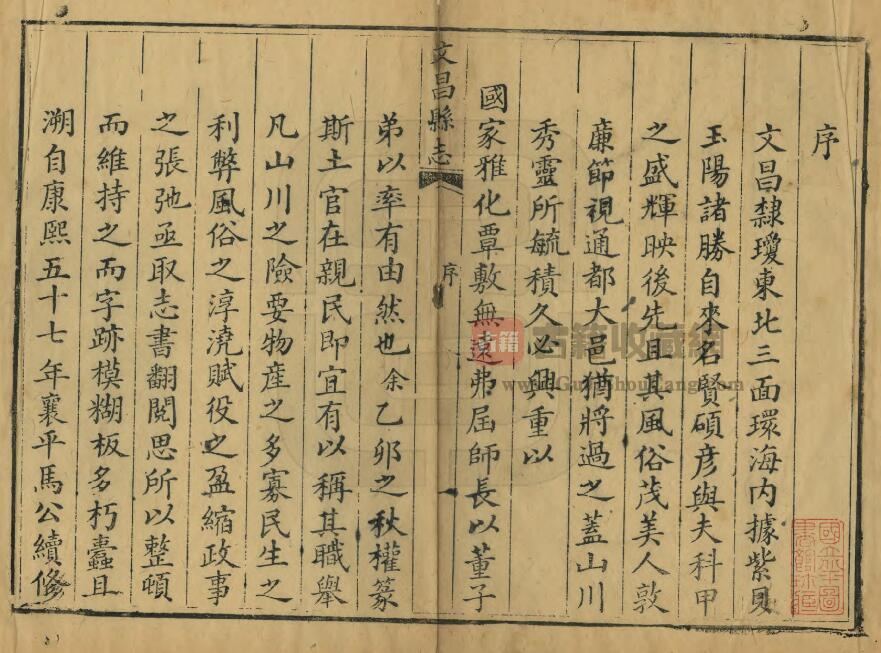 序
文昌隸瓊東北三面環海内據紫貝
玉陽諸勝自來名賢碩彦與夫科甲
之盛輝映後先且其風俗茂美人敦
廉節視通都大邑猶將過之蓋山川
秀靈所毓積久必興重以
國家雅化覃敷無遠弗屆師長以董子
文昌縣志
序
一
弟以率有由然也余乙卯之秋權篆
斯土官在親民即宜有以稱其職舉
凡山川之險要物產之多寡民生之
利弊風俗之淳澆賦役之盈縮政事
之張弛亟取志書翻閱思所以整頓
而維持之而字跡模糊板多朽蠹且
溯自康熙五十七年襄平馬公續修
古籍
古籍收藏網